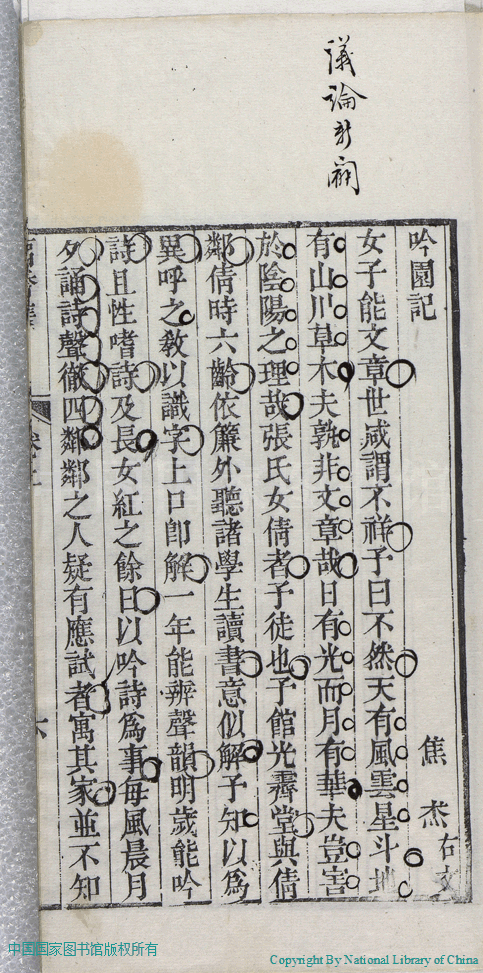 議論新
吟園記
焦　杰右文
女子能文章世咸謂不祥予曰不然天有風雲星斗地
有山川草木夫孰非文章哉日有光而月有華夫豈害
於陰陽之理哉張氏女倩者予徒也予館光霽堂與倩
鄰倩時六齡依簾外聽諸學生讀書意似解予知以爲
異呼之敎以識字上口卽解一年能辨聲韻明歲能吟
詩且性嗜詩及長女紅之餘日以吟詩爲事每風晨月
夕誦詩聲徹四鄰鄰之人疑有應試者寓其家並不知
中国国家图书馆版权所有
Copyright By National Library of China